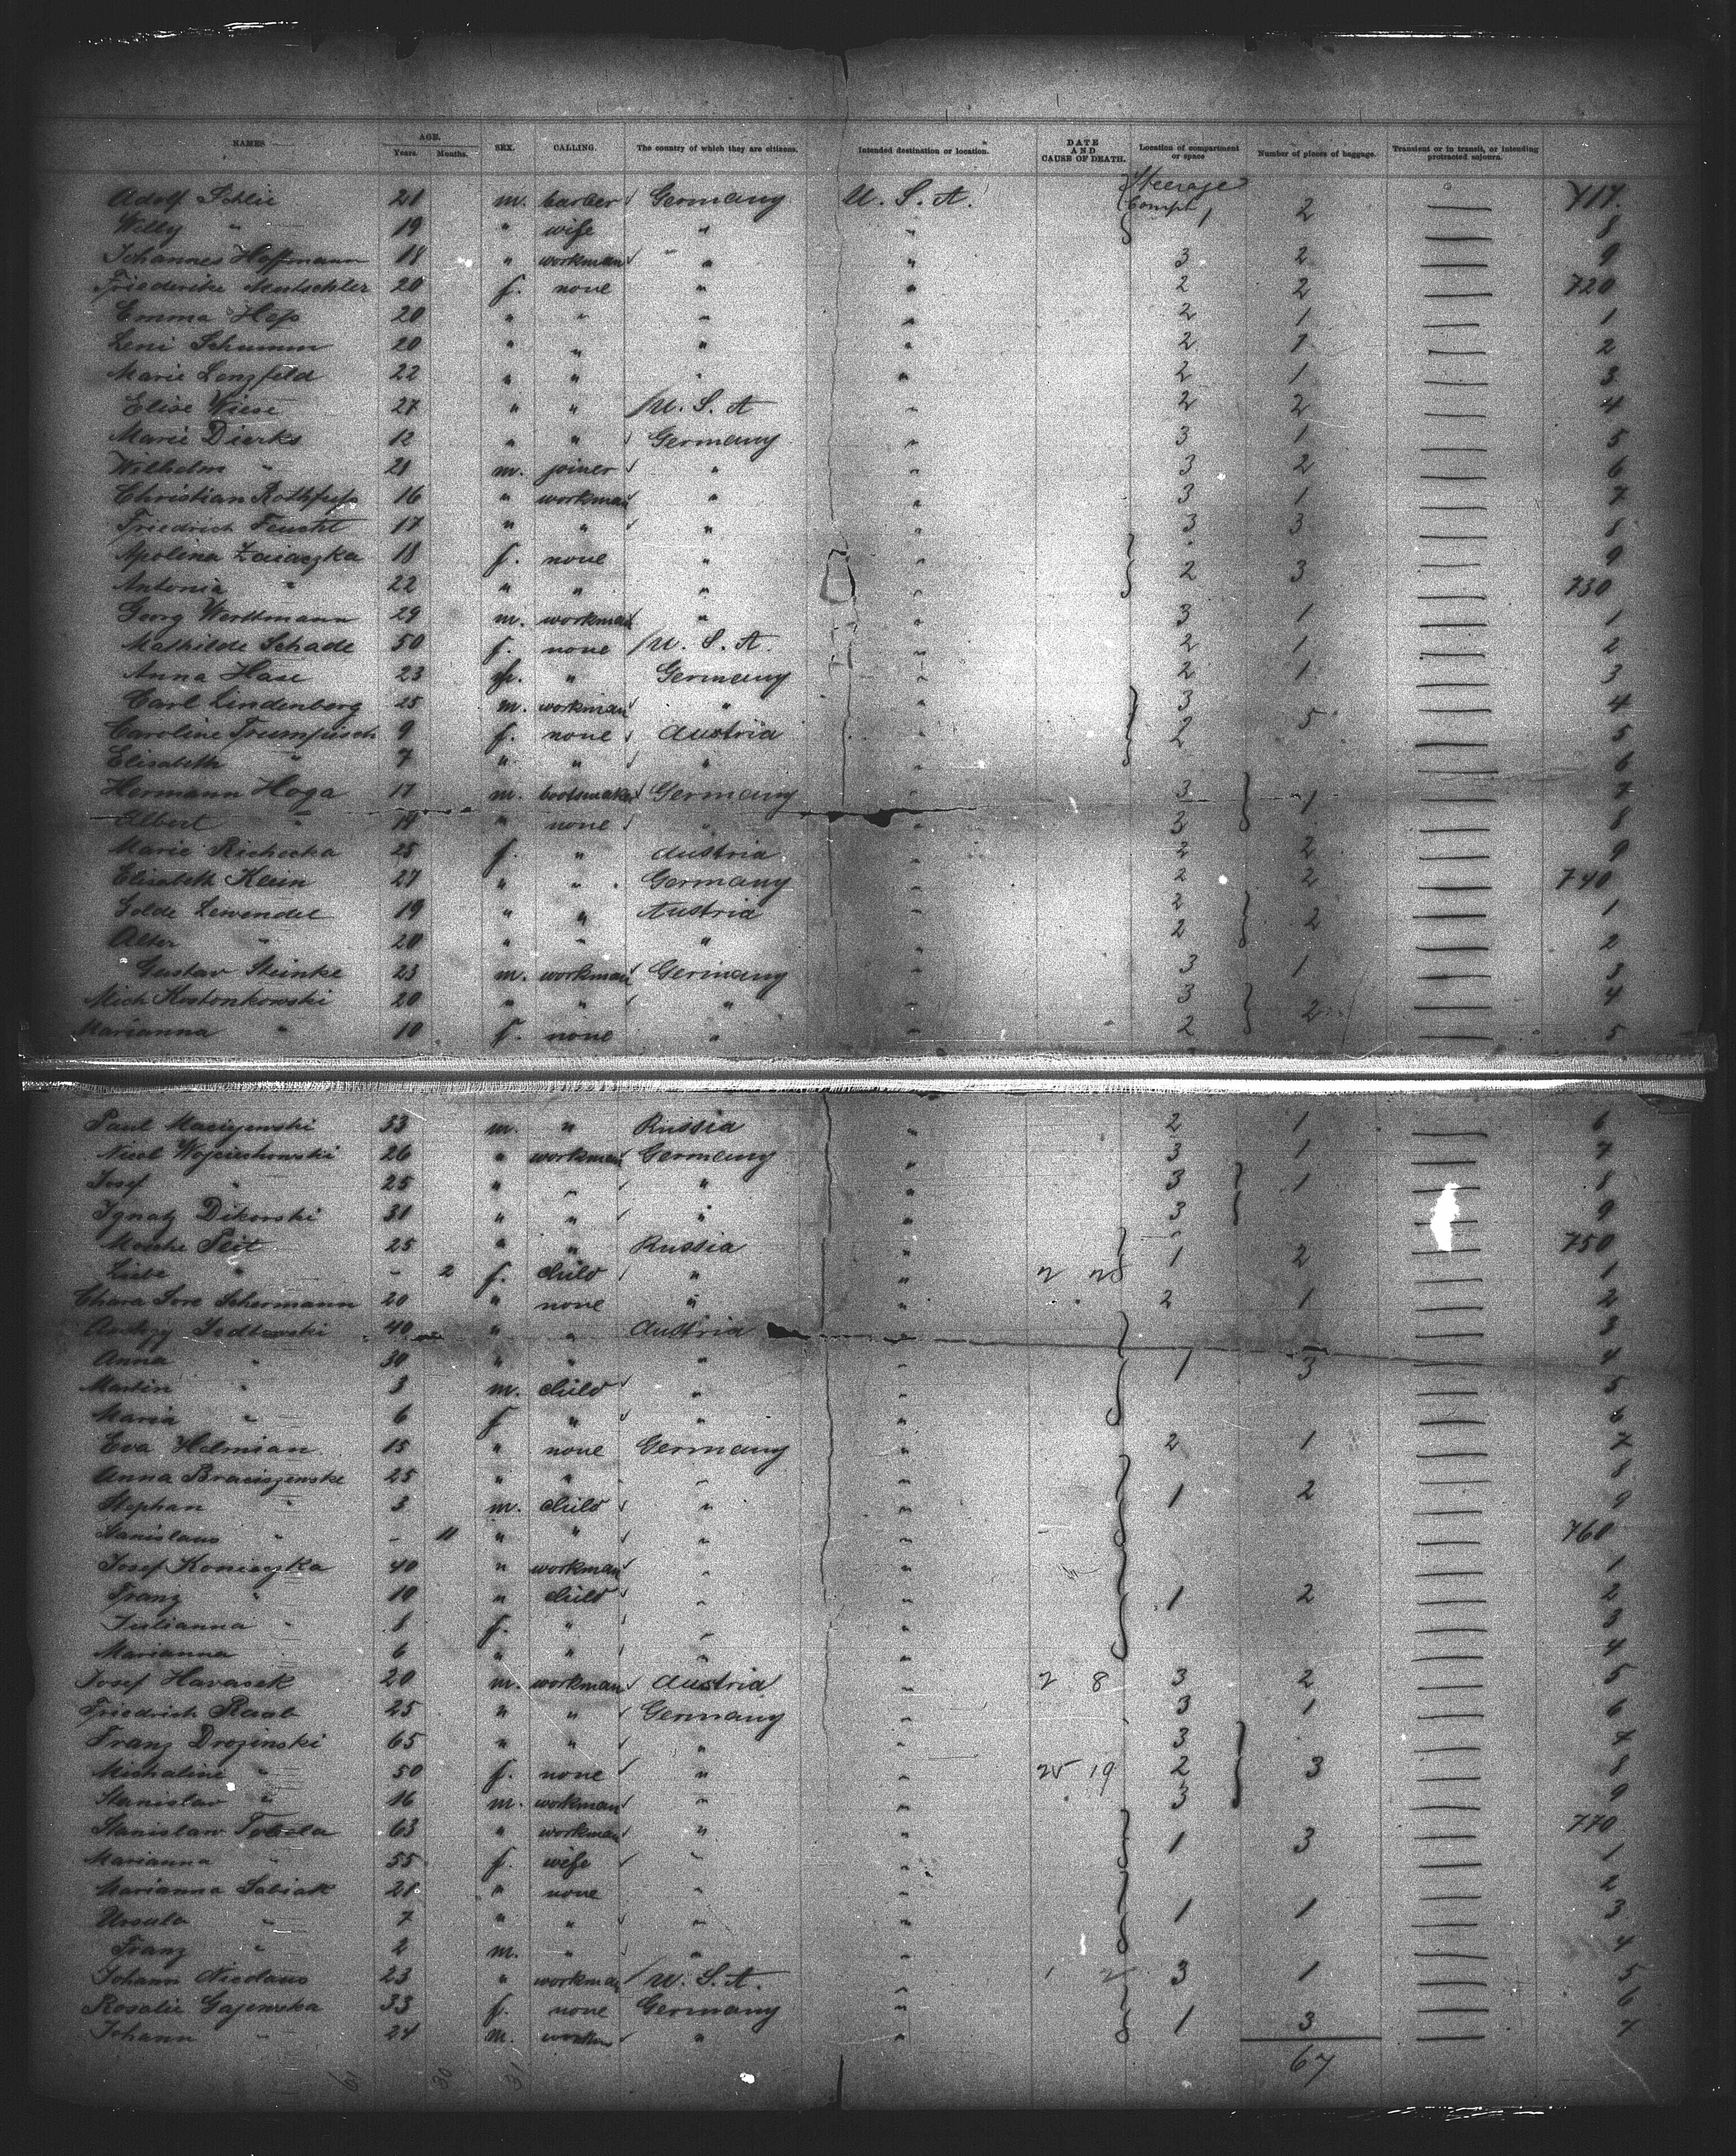 NAMES AGE. Years. Months. SEX. CALLING. The country of which they are citizens. Intended destination or location. DATE AND CAUSE OF DEATH. Location of compartment or space Number of pieces of baggage. Transient or in transit, or intending protracted sojourn.
Adolf Schlie 21 m. barber Germany U. S. A. Steerage Compt 1 2 717.
Willy " 19 " wife " " 8
Johannes Hoffmann 18 " workman " " 3 2 9
Friederike Mutschler 20 f. none " " 2 2 720
Emma Heß 20 " " " " 2 1 1
Leni Schumm 20 " " " " 2 1 2
Marie Lenzfeld 22 " " " " 2 1 3
Elise Wiese 27 " " U. S. A " 2 2 4
Marie Dierks 12 " " Germany " 3 1 5
Wilhelm " 21 m. joiner " " 3 2 6
Christian Rothfuß 16 " workman " " 3 1 7
Friedrich Feucht 17 " " " " 3 3 8
Apolina Zaiaczka 18 f. none " " 9
Antonia " 22 " " " " 2 3 730
Georg Werttmann 29 m. workman " " 3 1 1
Mathilde Schade 50 f. none U. S. A. " 2 1 2
Anna Hase 23 " Germany " 2 1 3
Carl Lindenberg 25 m. workman " " 3 4
Caroline Trumpisch 9 f. none Austria " 2 5 5
Elisabeth " 7 " " " " 6
Hermann Hoga 17 m. bootmaker Germany " 3 1 7
Albert " " none " " 3 8
Marie Richocka 25 f. " Austria " 2 2 9
Elisabeth Klein 27 " " Germany " 2 2 740
Golde Lewendel 19 " " Austria " 2 2 1
Alter " 20 " " " " 2 2
Gustav Steinke 23 m. workman Germany " 3 1 3
Mich Kostonkowski 20 " " " " 3 2 4
Marianna " 10 f. none " " 2 5
Paul 33 m. " Russia " 2 1 6
Nicol Wojciechowski 26 " workman Germany " 3 1 7
Josef " 25 " " " " 3 1 8
Ignatz Dikorski 31 " " " " 3 9
Mosche Peit 25 " " Russia " 1 2 750
Liebe " - 2 f. child " " 1
Chara Sore Schermann 20 " none " " 2 1 2
Sedlowski 40 " " Austria " 3
Anna " 30 " " " " 1 3 4
Martin " 3 m. child " " 5
Maria " 6 f " " " 6
Eva Helmian 15 " none Germany " 2 1 7
Anna Braciszewske 25 " " " " 8
Stephan " 3 m. child " " 1 2 9
Stanislaus " - 11 " " " " 760
Josef Konieczka 40 " workman " " 1
Franz " 10 " child " " 1 2 2
Julianna " 8 f. " " " 3
Marianna " 6 " " " " 4
Josef Havasek 20 m. workman Austria " 2 8 3 2 5
Friedrich Raab 25 " " Germany " 3 1 6
Franz Drozinski 65 " " " " 3 7
Michaline " 50 f. none " " 25 19 2 3 8
Stanislav " 16 m. workman " " 3 9
Stanislaw Tobola 63 " workman " " 1 3 770
Marianna " 55 f. wife " " 1
Marianna Sabiak 21 " none " " 2
Ursula " 7 " " " " 1 1 3
Franz " 2 m. " " " 4
Johann Nicolaus 23 " workman U. S. A. " 1 2 3 1 5
Rosalie Gajewska 33 f. none Germany " 6
Johann " 24 m. " " 1 3 7
61 30 31 67